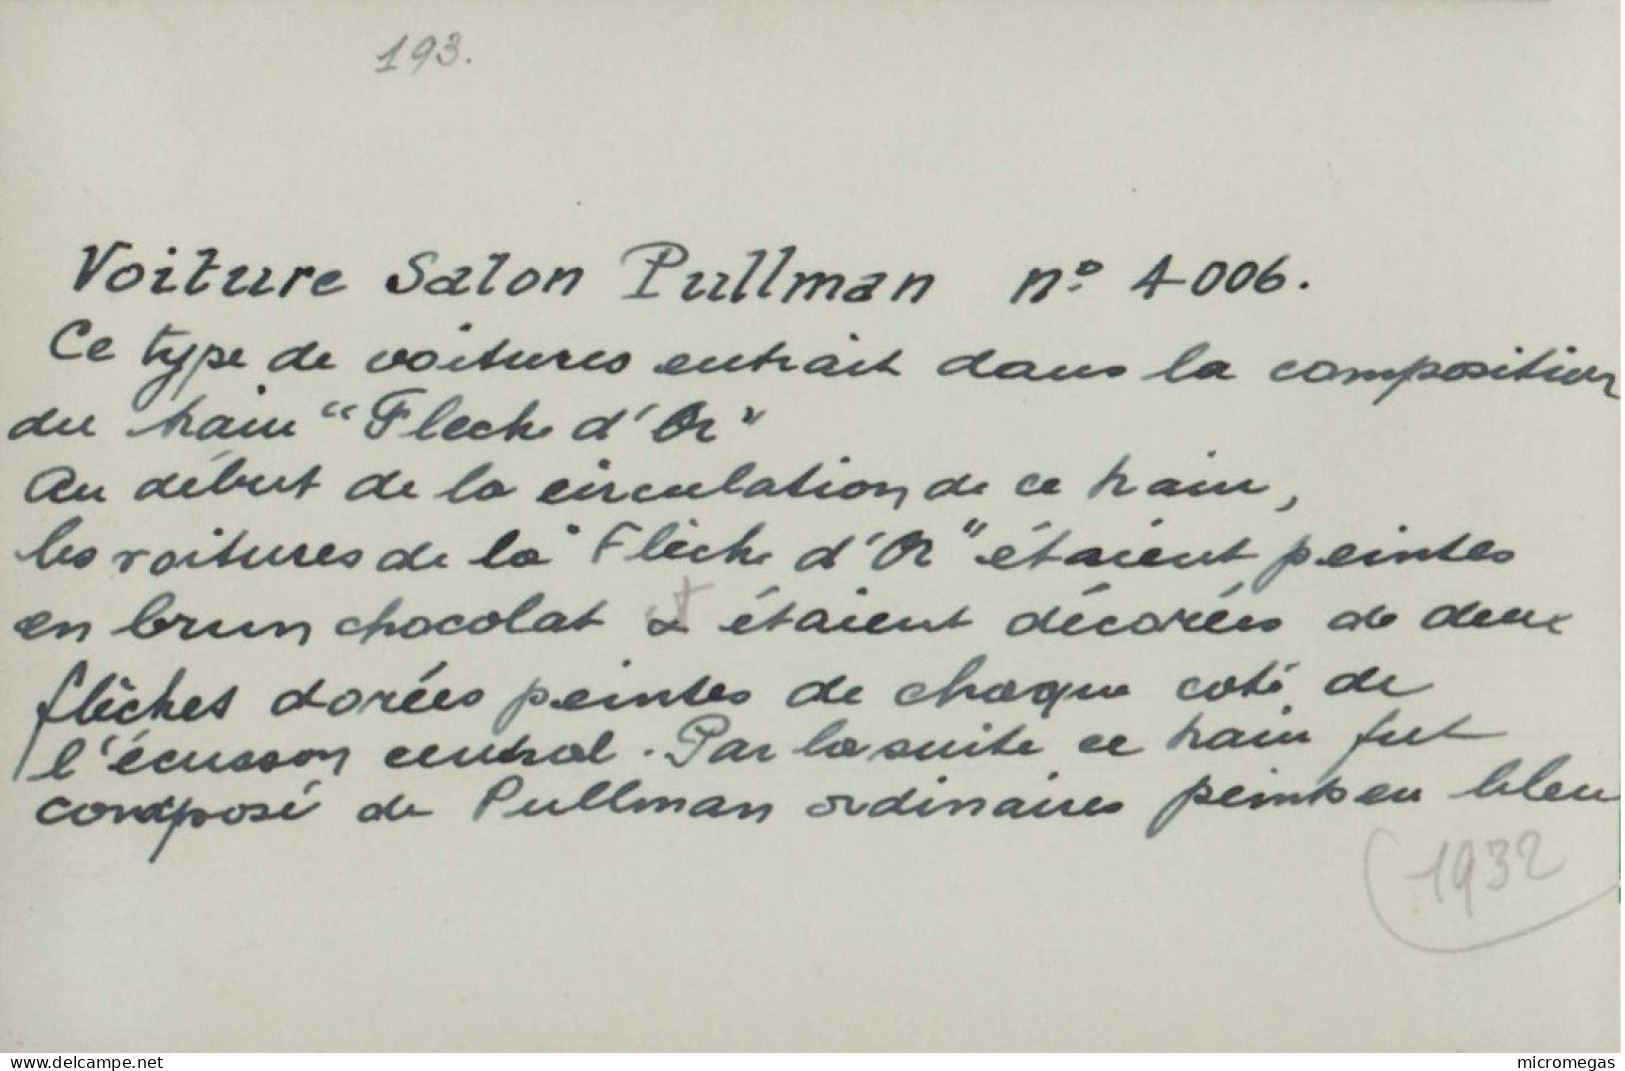 193.
Voiture Salon Pullman n° 4006.
Ce type de voitures entrait dans la composition
du train "Fleche d'Or"
Au début de la circulation de ce train,
les voitures de la "Flèche d'Or" étaient peintes
en brun chocolat et étaient décorées de deux
flèches dorées peintes de chaque coté de
l'écusson central. Par la suite ce train fut
composé de Pullman ordinaires peints en bleu
(1932
www.delcampe.net
micromegas